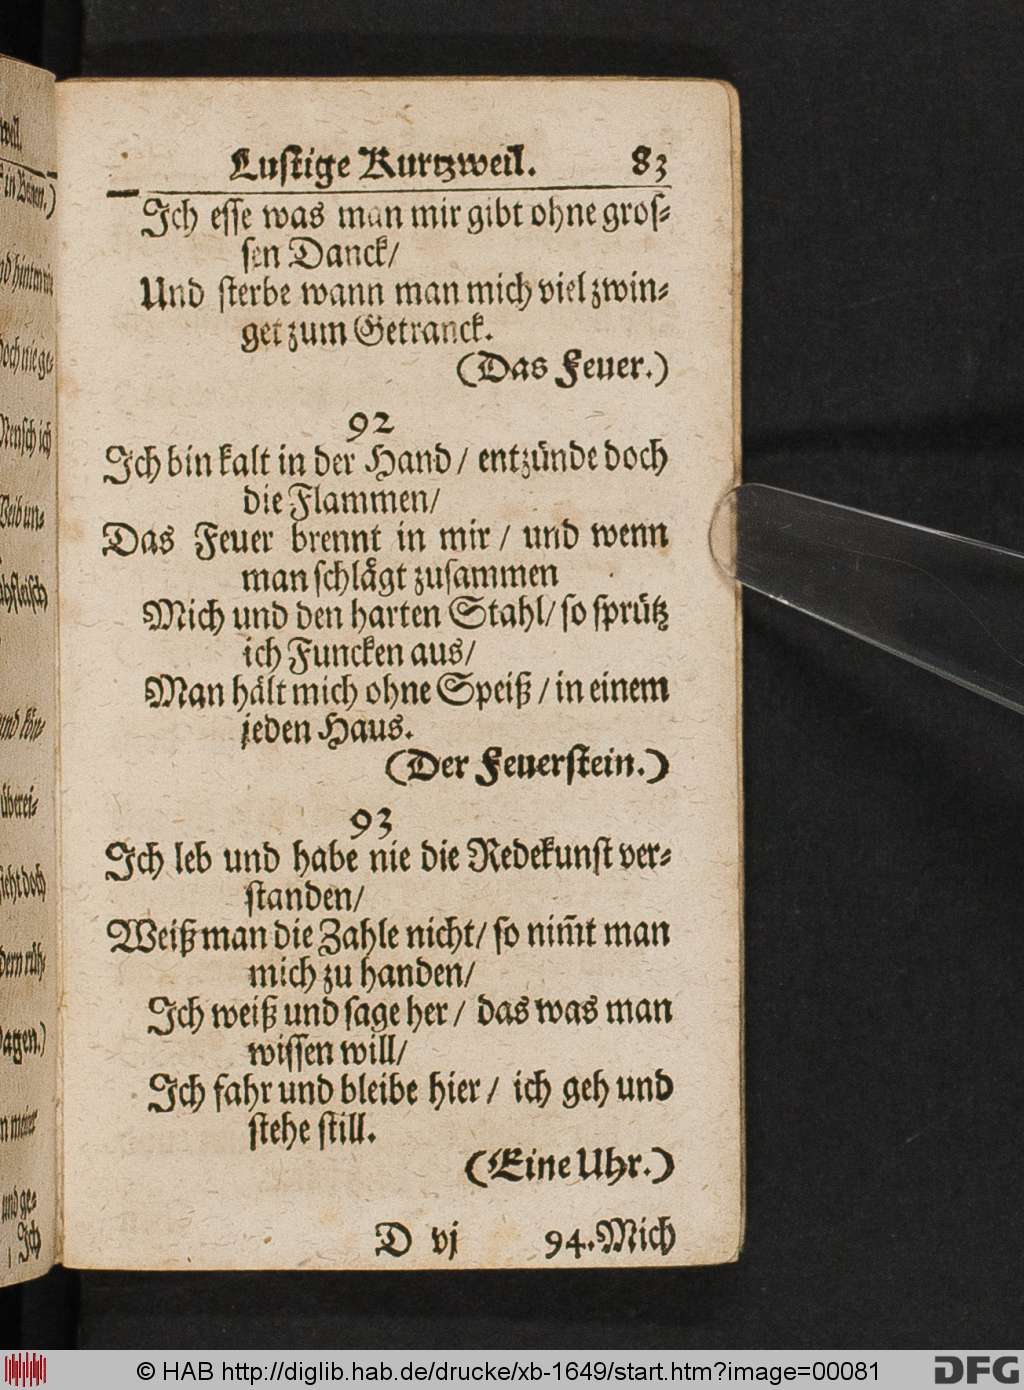 Lustige Kurtzweil. 83
Ich esse was man mir gibt ohne gros-
sen Danck/
Und sterbe wann man mich viel zwin-
get zum Getranck.
(Das Feuer.)
92
Ich bin kalt in der Hand / entzünde doch
die Flammen/
Das Feuer brennt in mir / und wenn
man schlägt zusammen
Mich und den harten Stahl/ so sprütz
ich Funcken aus/
Man hält mich ohne Speiß / in einem
jeden Haus.
(Der Feuerstein.)
93
Ich leb und habe nie die Redekunst ver-
standen/
Weiß man die Zahle nicht/ so nim̃t man
mich zu handen/
Ich weiß und sage her / das was man
wissen will/
Ich fahr und bleibe hier / ich geh und
stehe still.
(Eine Uhr.)
D vj 94. Mich
© HAB http://diglib.hab.de/drucke/xb-1649/start.htm?image=00081
DFG